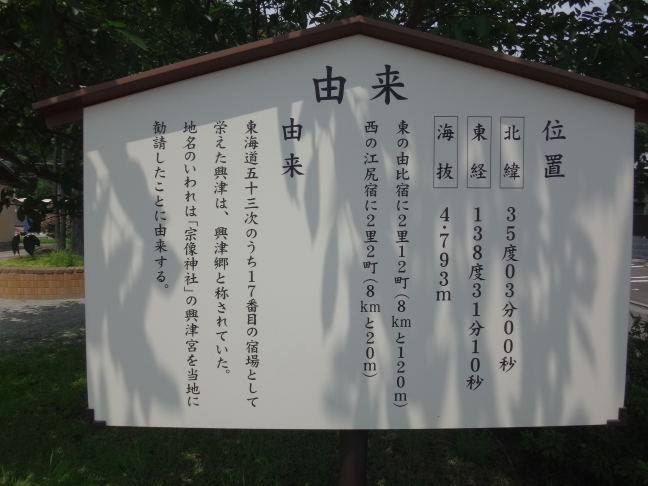 由来
位置
北緯 35度03分00秒
東経 138度31分10秒
海抜 4.793m
東の由比宿に2里12町(8kmと120m)
西の江尻宿に2里2町(8kmと20m)
由来
東海道五十三次のうち17番目の宿場として
栄えた興津は、興津郷と称されていた。
地名のいわれは「宗像神社」の興津宮を当地に
勧請したことに由来する。